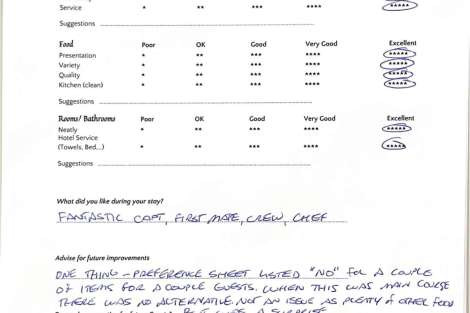 Service * ** *** **** *****
Suggestions
Food Poor OK Good Very Good Excellent
Presentation * ** *** **** *****
Variety * ** *** **** *****
Quality * ** *** **** *****
Kitchen (clean) * ** *** **** *****
Suggestions
Rooms/ Bathrooms Poor OK Good Very Good Excellent
Neatly * ** *** **** *****
Hotel Service
(Towels, Bed...) * ** *** **** *****
Suggestions
What did you like during your stay?
FANTASTIC CAPT, FIRST MATE, CREW, CHEF
Advise for future improvements
ONE THING - PREFERENCE SHEET LISTED "NO" FOR A COUPLE
OF ITEMS FOR A COUPLE GUESTS. WHEN THIS WAS MAIN COURSE
THERE WAS NO ALTERNATIVE. NOT AN ISSUE AS PLENTY OF OTHER FOOD
BUT WAS A SURPRISE